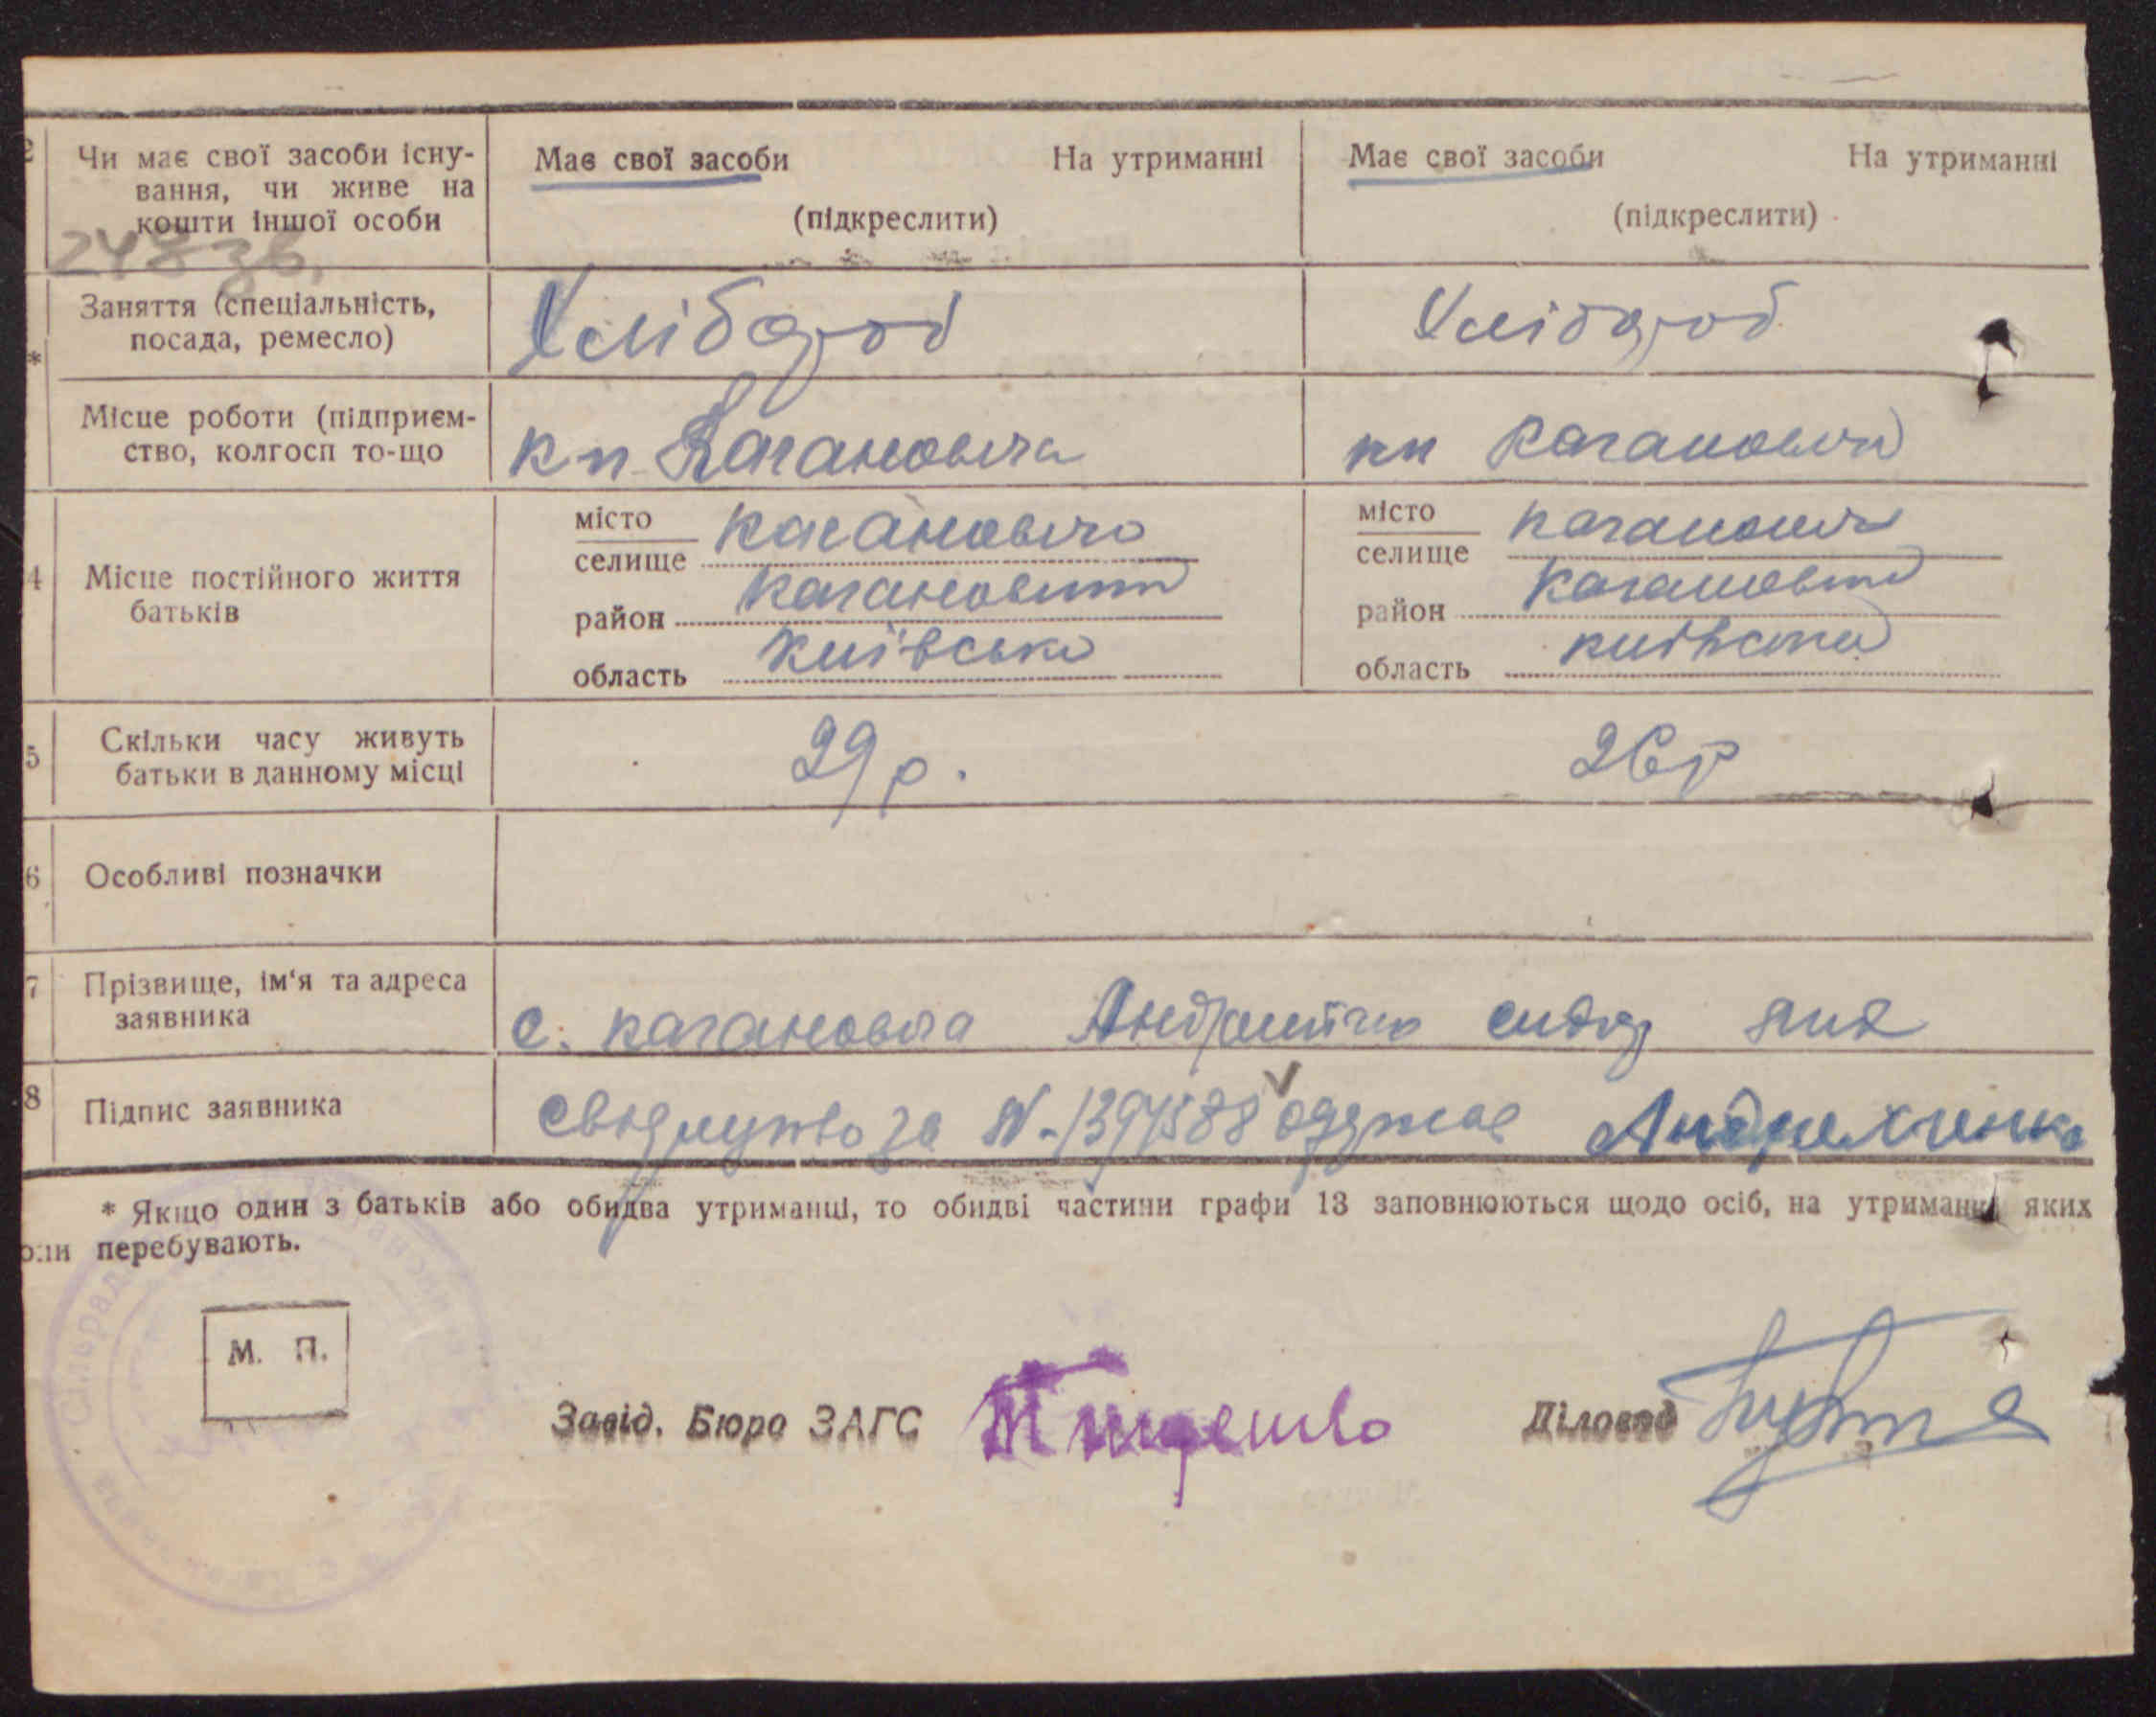 2 Чи має свої засоби існу-
вання, чи живе на
кошти іншої особи
Має свої засоби На утриманні
(підкреслити)
Має свої засоби На утриманні
(підкреслити)
247 зв.
Заняття (спеціальність,
посада, ремесло)
Хлібороб
Хлібороб
*
Місце роботи (підприєм-
ство, колгосп то-що
кп Кагановича
кп Кагановича
4 Місце постійного життя
батьків
місто
селище Кагановича
район Кагановичи
область Київська
місто
селище Кагановича
район Кагановичи
область Київська
5 Скільки часу живуть
батьки в данному місці
29 р.
26 р
6 Особливі позначки
7 Прізвище, ім'я та адреса
заявника
с. Кагановича Сидор
8 Підпис заявника
за N-1394588 V одержав
* Якщо один з батьків або обидва утриманці, то обидві частини графи 13 заповнюються щодо осіб, на утриманні яких
они перебувають.
Сільрада
М. П.
Завід. Бюро ЗАГС
Діловод